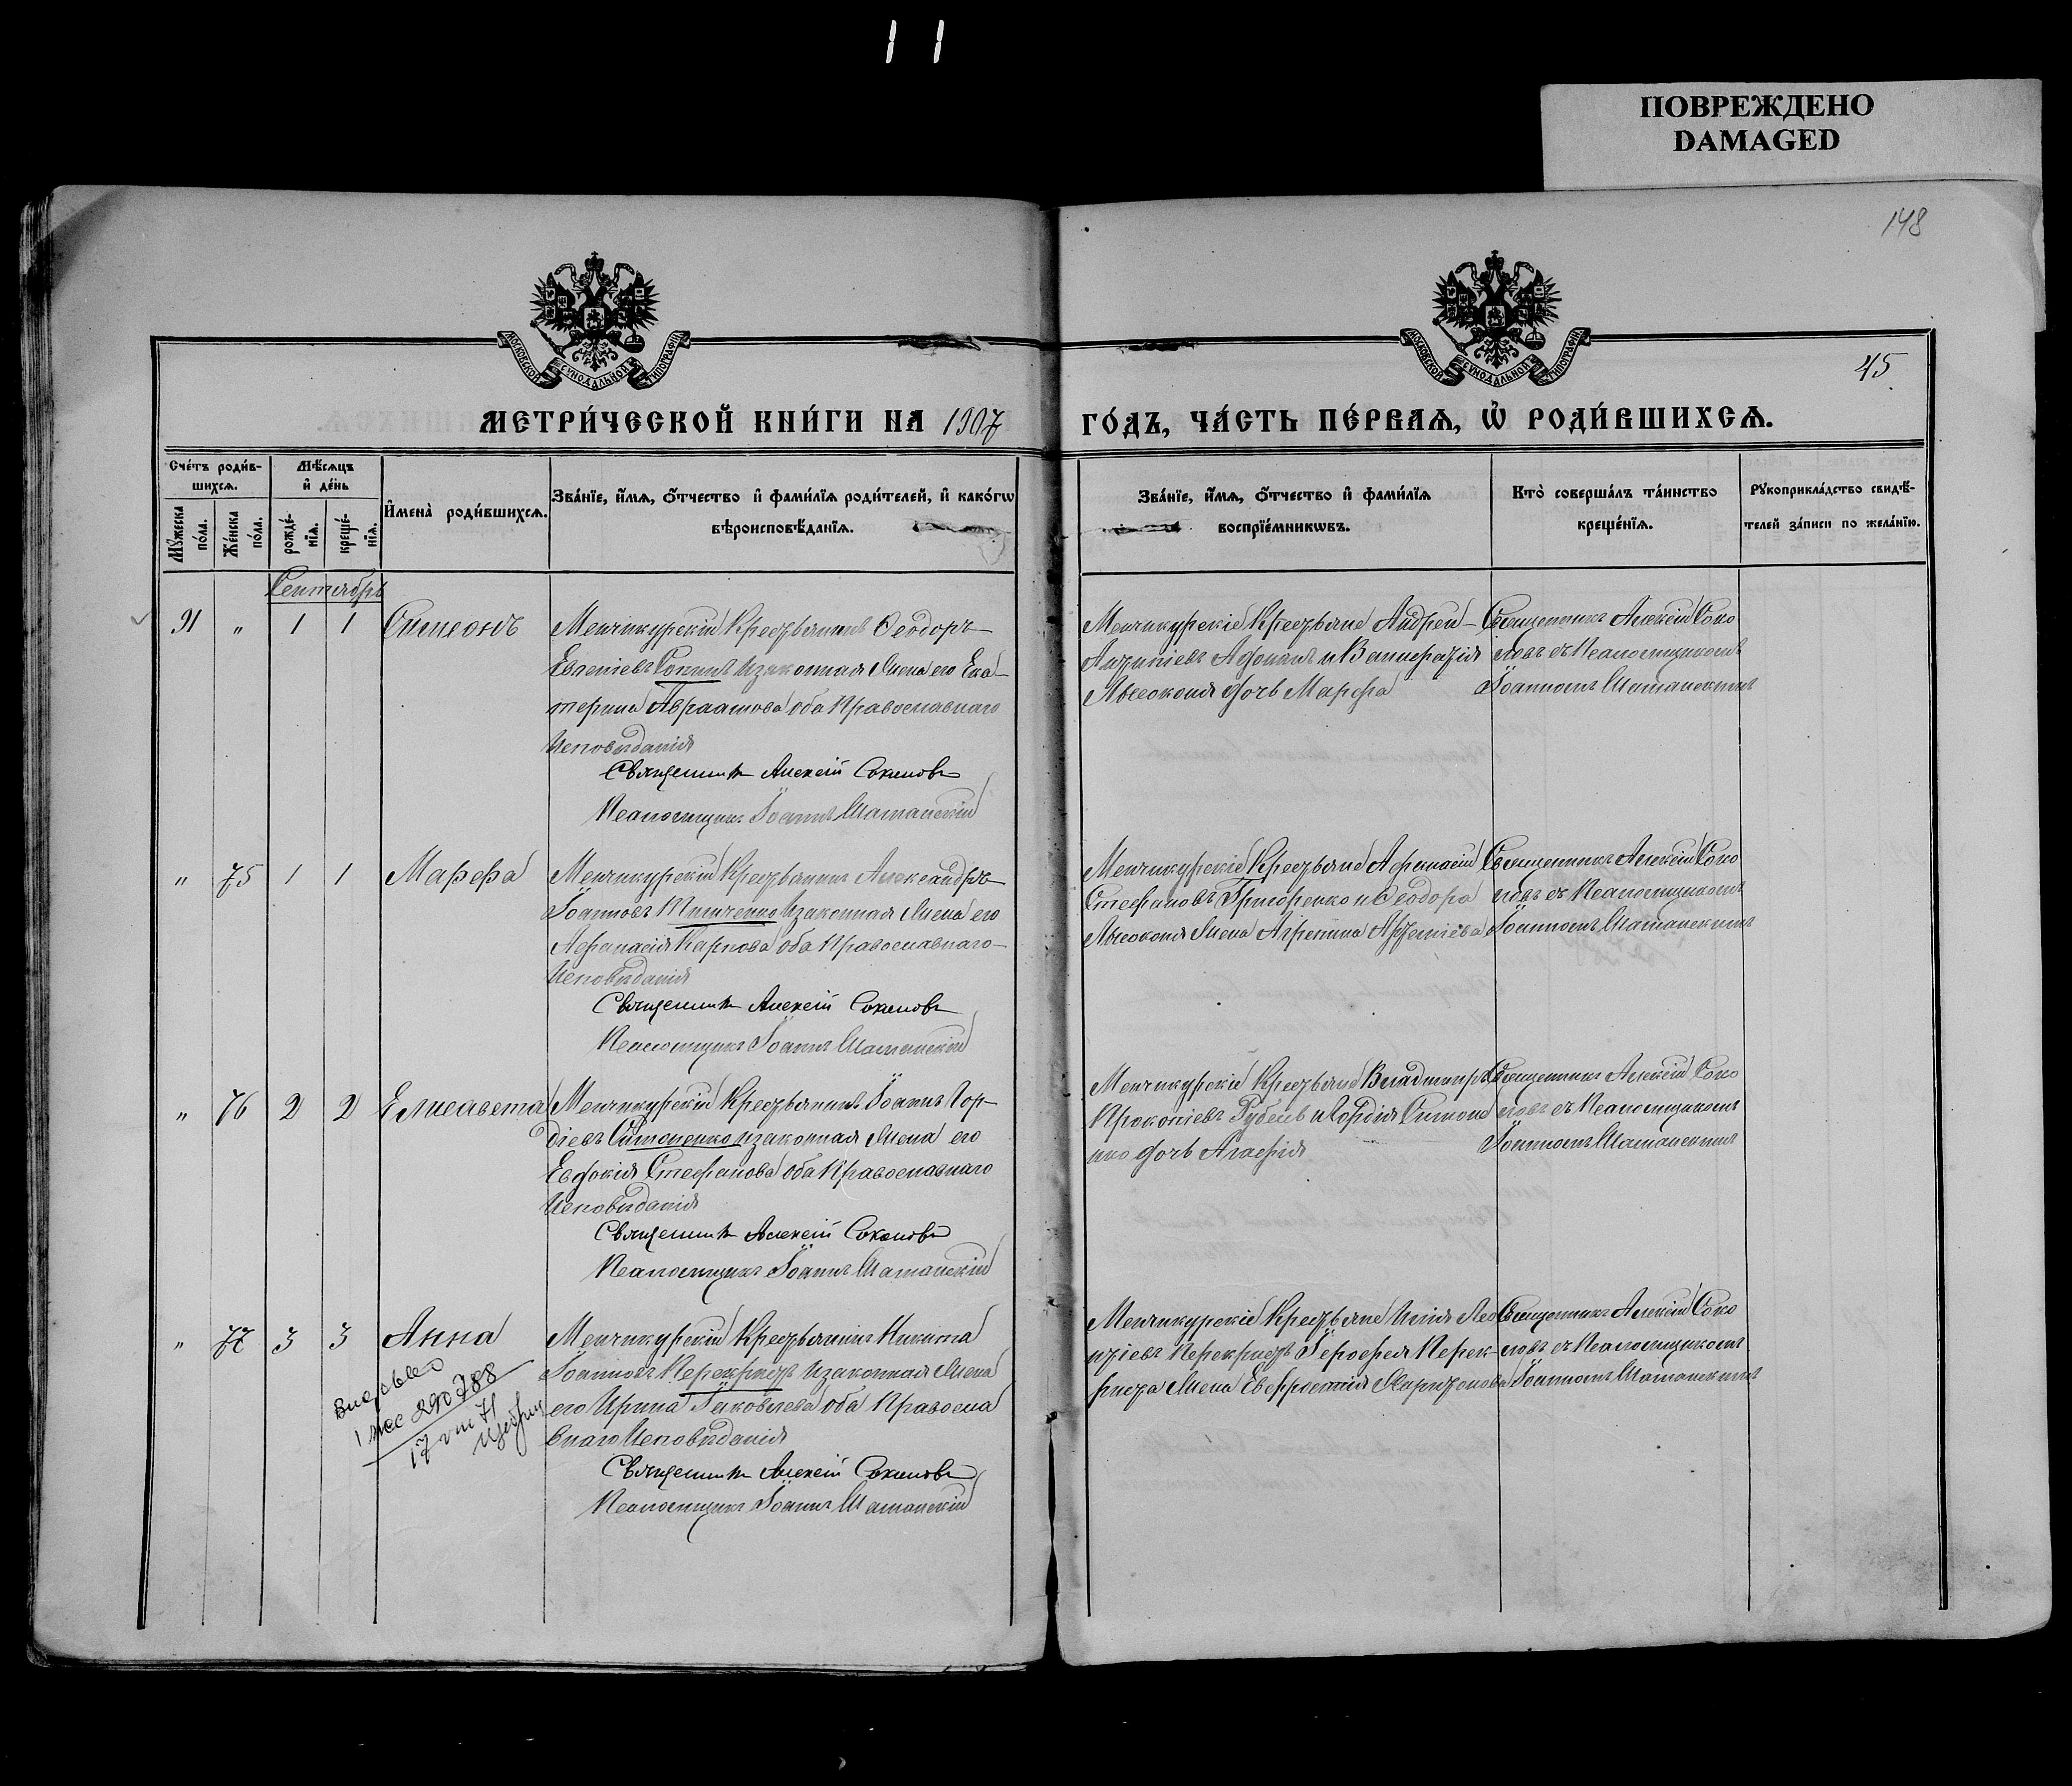 ПОВРЕЖДЕНО
DAMAGED
148
45
МОСКОВСКОЙ СѴНОДАЛЬНОЙ ТИПОГРАФІИ
МОСКОВСКОЙ СѴНОДАЛЬНОЙ ТИПОГРАФІИ
МЕТРИ́ЧЕСКОЙ КНИ́ГИ НА 1907
ГО́ДЪ, ЧА́СТЬ ПЕ́РВАѦ, Ѡ҆ РОДИ́ВШИХСѦ.
Сче́тъ роди́в-
шихсѧ.
Мꙋ́жеска по́ла.
Же́нска по́ла.
Мѣ́сѧцъ
и҆ де́нь
рожде́-
нїѧ.
креще́-
нїѧ.
И҆мена̀ роди́вшихсѧ.
Зва́нїе, и҆́мѧ, ѻ҆́тчество и҆ фами́лїѧ роди́телей, и҆ како́гѡ
вѣроисповѣ́данїѧ.
Зва́нїе, и҆́мѧ, ѻ҆́тчество и҆ фами́лїѧ
воспрїе́мникѡвъ.
Кто̀ соверша́лъ та́инство
креще́нїѧ.
Рꙋкоприкла́дство свидѣ́-
телей за́писи по жела́нїю.
Сентябрь
91 " 1 1 Симеонъ
Менчикурскій Крестьянинъ Ѳеодоръ
Евгеніевъ изаконная Жена его Ека-
терина Авраамова оба Православнаго
Исповѣданія
Священникъ Алексій Соколовъ
Псаломщикъ Іоаннъ Шаманскій
Менчикурскіе Крестьяне Андрей
Афонинъ и
дочь Марфа
Священникъ Алексій Соко
ловъ съ Псаломщикомъ
Іоанномъ Шаманскимъ
" 75 1 1 Марфа
Менчикурскій Крестьянинъ Александръ
Іоанновъ Тимченко изаконная Жена его
Афанасія Карпова оба Православнаго
Исповѣданія
Священникъ Алексій Соколовъ
Псаломщикъ Іоаннъ Шаманскій
Менчикурскіе Крестьяне Афанасій
Стефановъ Григоренко и Ѳеодора
Жена Агрепина
Священникъ Алексій Соко
ловъ съ Псаломщикомъ
Іоанномъ Шаманскимъ
" 76 2 2 Елисавета
Менчикурскій Крестьянинъ Іоаннъ Гор-
діевъ Симоненко изаконная Жена его
Евдокія Стефанова оба Православнаго
Исповѣданія
Священникъ Алексій Соколовъ
Псаломщикъ Іоаннъ Шаманскій
Менчикурскіе Крестьяне Владимиръ
Прокопіевъ Рубенъ и Гордія Симоне
нко дочь Агафія
Священникъ Алексій Соко
ловъ съ Псаломщикомъ
Іоанномъ Шаманскимъ
" 77 3 3 Анна
290788
Менчикурскій Крестьянинъ Никита
Іоанновъ Перекрестъ изаконная Жена
его Ирина Іаковлева оба Правосла
внаго Исповѣданія
Священникъ Алексій Соколовъ
Псаломщикъ Іоаннъ Шаманскій
Менчикурскіе Крестьяне Илія Лео
нтіевъ Перекрестъ Іерофея Перек-
реста Жена Евфросинія Харитонова
Священникъ Алексій Соко
ловъ съ Псаломщикомъ
Іоанномъ Шаманскимъ